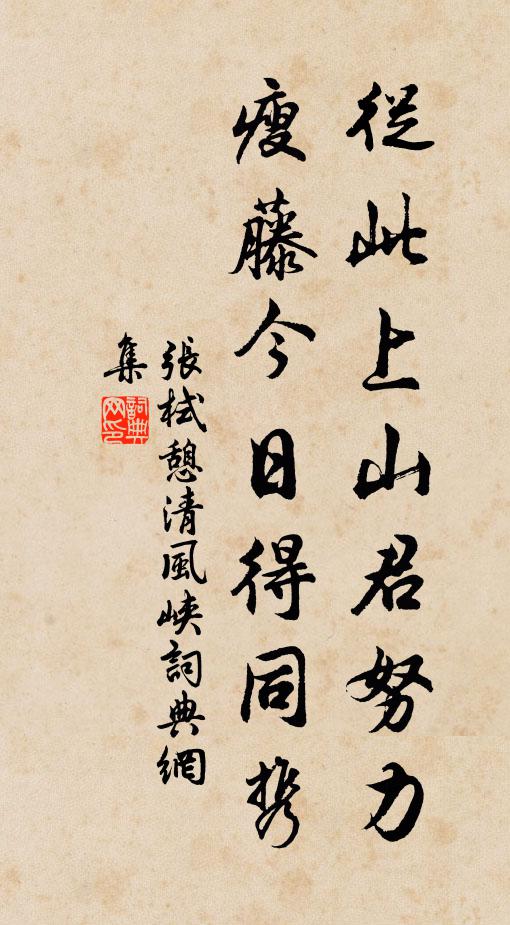 從此上山君努力
瘦藤今日得同携
張栻憩清風峽詞典網
集
詞典
网印